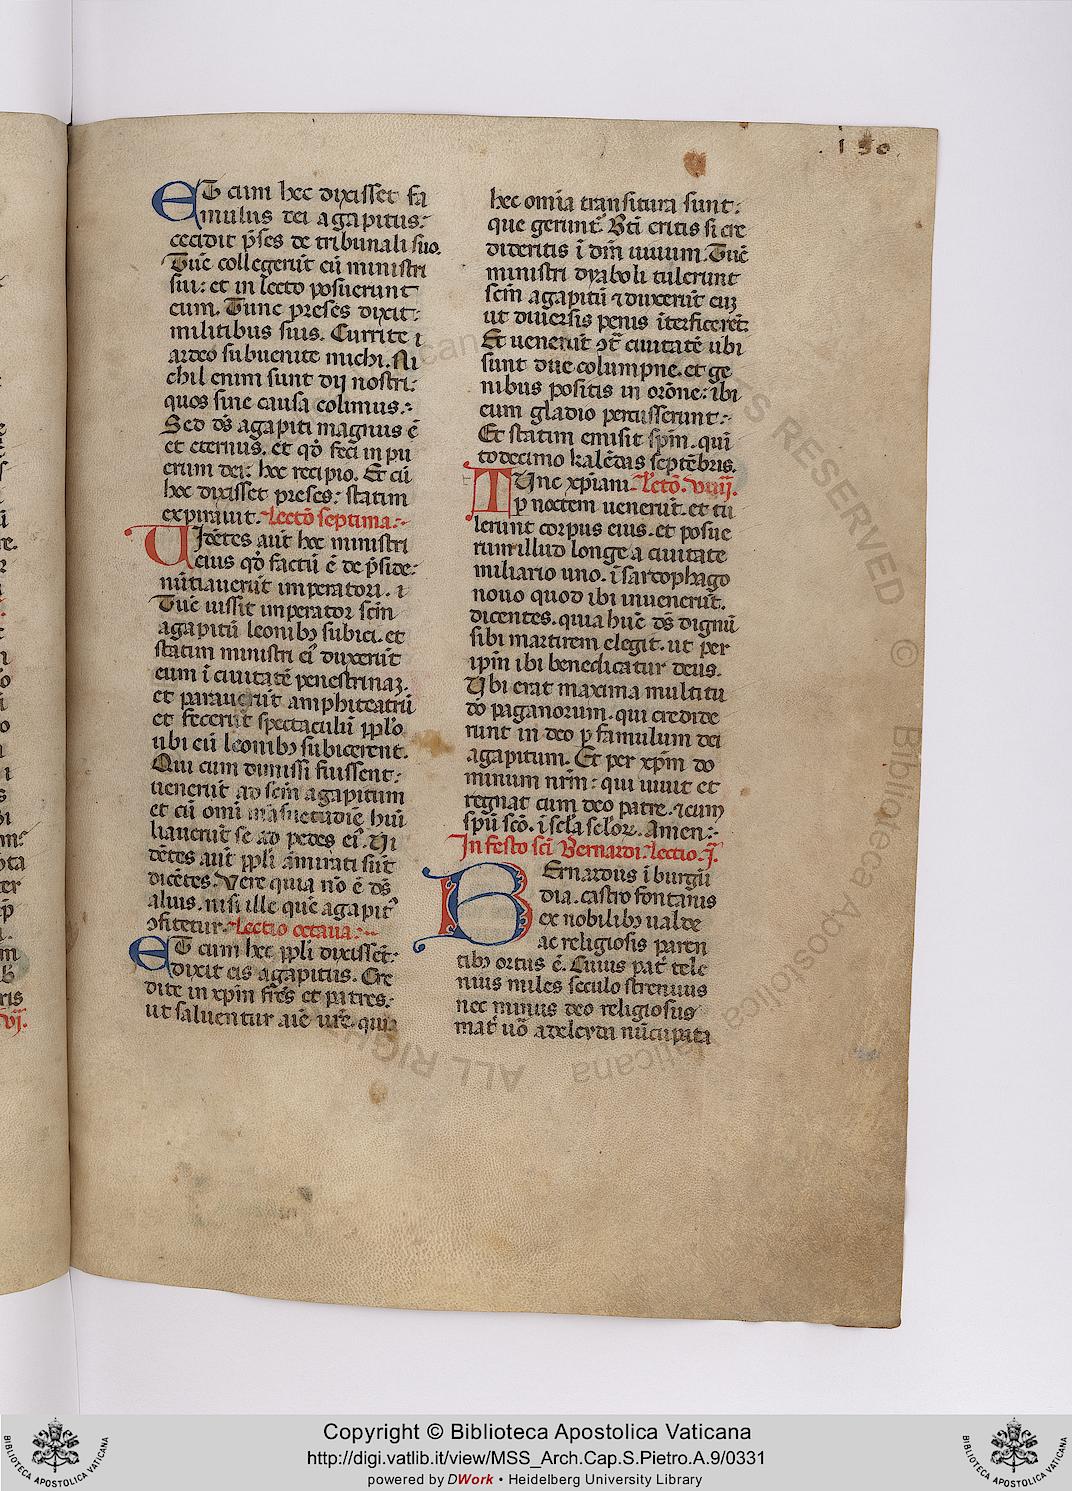 . 130.
ET cum hec dixisset fa
mulus dei agapitus:
cecidit p̄ses de tribunali suo.
Tūc collegerūt eū ministri
sui: et in lecto posuerunt
eum. Tunc preses dixit:
militibus suis. Currite ⁊
ardeo subuenite michi. Ni
chil enim sunt dij nostri:
quos sine causa colimus:
Sed ds̄ agapiti magnus ē
et eternus. et qd̓ feci in pu
erum dei: hec recipio. Et cū
hec dixisset preses: statim
expirauit. Lectō septima:
Uidētes aut̄ hec ministri
eius qd̓ factū ē de p̄side:
nūtiauerūt imperatori. ⁊
Tūc iussit imperator scm̄
agapitū leonibꝫ subici. et
statim ministri eiꝰ duxerūt
eum ī ciuitatē penestrinaꝫ.
et parauerūt amphiteatrū
et fecerūt spectaculū pplo
ubi eū leonibꝫ subicerent.
Qui cum dimissi fuissent:
uenerūt ad scm̄ agapitum
et cū omī māsuetudīe hūi
liauerūt se ad pedes eiꝰ. Ui
dētes aut̄ ppli amirati sūt
dicētes. Vere quia nō ē ds̄
alius. nisi ille quē agapitꝰ
ꝯfitetur. Lectio octaua:
ET cum hec ppli dixissēt:
dixit eis agapitus. Cre
dite in xpm̄ frēs et patres.
ut saluentur aīe vrē. quia
hec omīa transitura sunt:
que gerunt̄. Bti eritis si cre
dideritis ī dm̄ uiuum. Tūc
ministri dyaboli tulerunt
scm̄ agapitū ⁊ duxerūt euꝫ
ut diuersis penis īterficerēt
Et uenerūt ꝯt̄ ciuitatē ubi
sunt due columpne. et ge
nibus positis in orōne: ibi
eum gladio percusserunt:
Et statim emisit spm̄. quī
todecimo kalēdas septēbris.
TUnc xpiani. Lctō. viiij.
ꝑ noctem uenerūt. et tu
lerunt corpus eius. et posue
rum illud longe a ciuitate
miliario uno. ī sarcophago
nouo quod ibi inuenerūt.
dicentes. quia hūc ds̄ dignū
sibi martirem elegit. ut per
ipm̄ ibi benedicatur deus.
Ubi erat maxima multitu
do paganorum. qui credide
runt in deo ꝑ famulum dei
agapitum. Et per xpm̄ do
minum nrm̄: qui uiuit et
regnat cum deo patre. ⁊ cum
spū scō. ī scl̄a scl̄oꝝ. Amen:
In festo scī Bernardi. lectio. j̄.
BErnardus ī burgū
dia. castro fontanis
ex nobilibꝫ ualde
ac religiosis paren
tibꝫ ortus ē. Cuius pat̄ tele
nius miles seculo strenuus
nec minus deo religiosus
mat̄ uō adeleyda nūcupata
Copyright © Biblioteca Apostolica Vaticana
http://digi.vatlib.it/view/MSS_Arch.Cap.S.Pietro.A.9/0331
powered by DWork • Heidelberg University Library
BIBLIOTECA APOSTOLICA VATICANA
BIBLIOTECA APOSTOLICA VATICANA